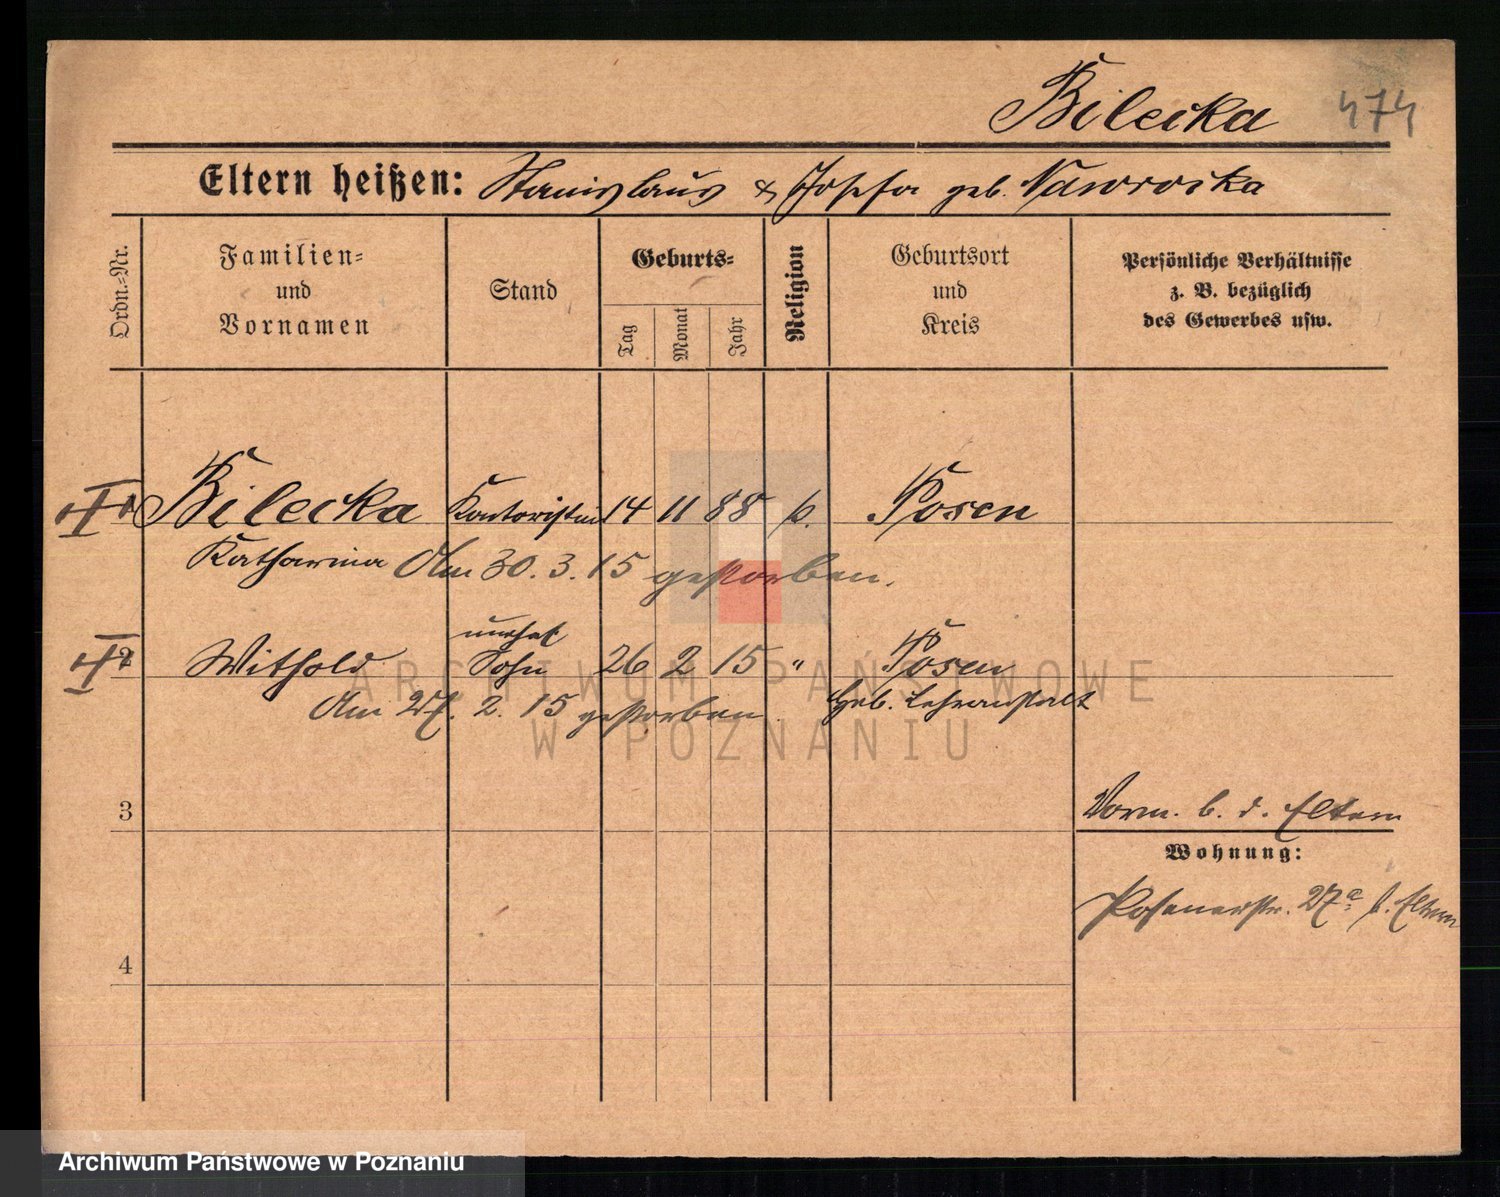 Bilecka 474
Eltern heißen: Stanislaus & Josefa geb. Nawrocka
Ordn.-Nr.
Familien-
und
Vornamen
Stand
Geburts-
Tag
Monat
Jahr
Religion
Geburtsort
und
Kreis
Persönliche Verhältnisse
z. B. bezüglich
des Gewerbes usw.
Bilecka Kontoristin 14 11 88 k. Posen
Katharina Am 30. 3. 15 gestorben.
unehel
2 Withold Sohn 26 2 15 " Posen
Am 27. 2. 15 gestorben. Heb. Lehranstalt
3
Vorm. b. d. Eltern
Wohnung:
Posenerstr. 27a b. Eltern
4
ARCHIWUM PAŃSTWOWE
W POZNANIU
Archiwum Państwowe w Poznaniu